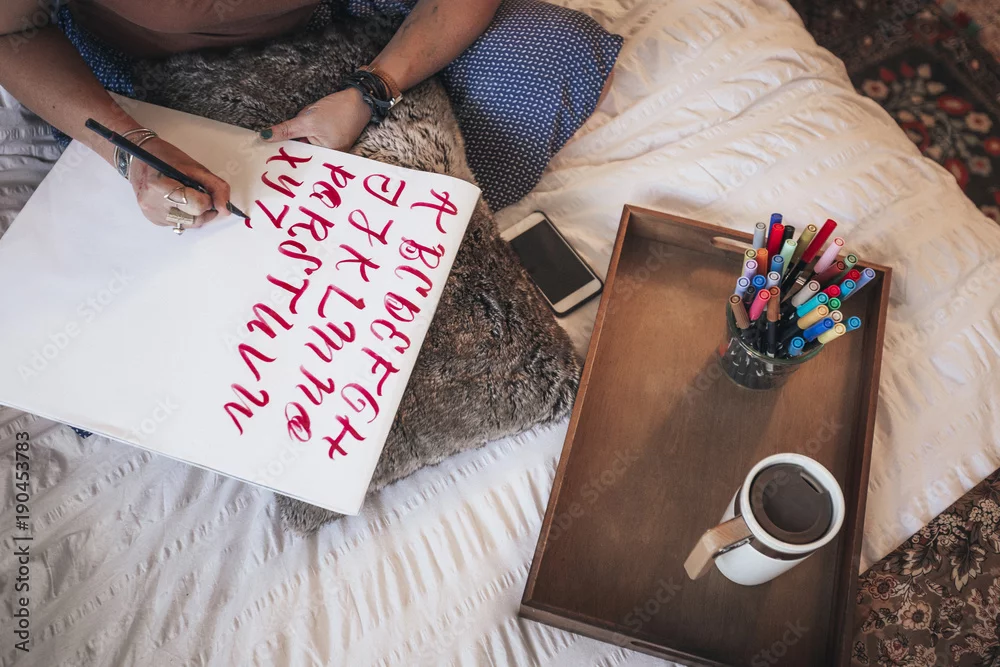 ABCDEFGH
IJKLMNO
PQRSTUVW
XYZ
Adobe Stock | #190453783